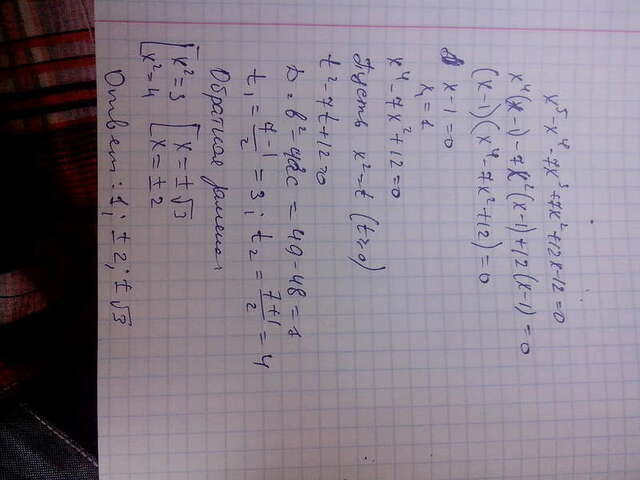 x⁵-x⁴-7x³+7x²+12x-12=0
x⁴(x-1)-7x²(x-1)+12(x-1)=0
(x-1)(x⁴-7x²+12)=0
x-1=0
x₁=1
x⁴-7x²+12=0
Пусть x²=t (t≥0)
t²-7t+12=0
D=b²-4ac=49-48=1
t₁=(7-1)/2=3; t₂=(7+1)/2=4
Обратная замена
[x²=3 [x=±√3
[x²=4 [x=±2
Ответ: 1; ±2; ±√3